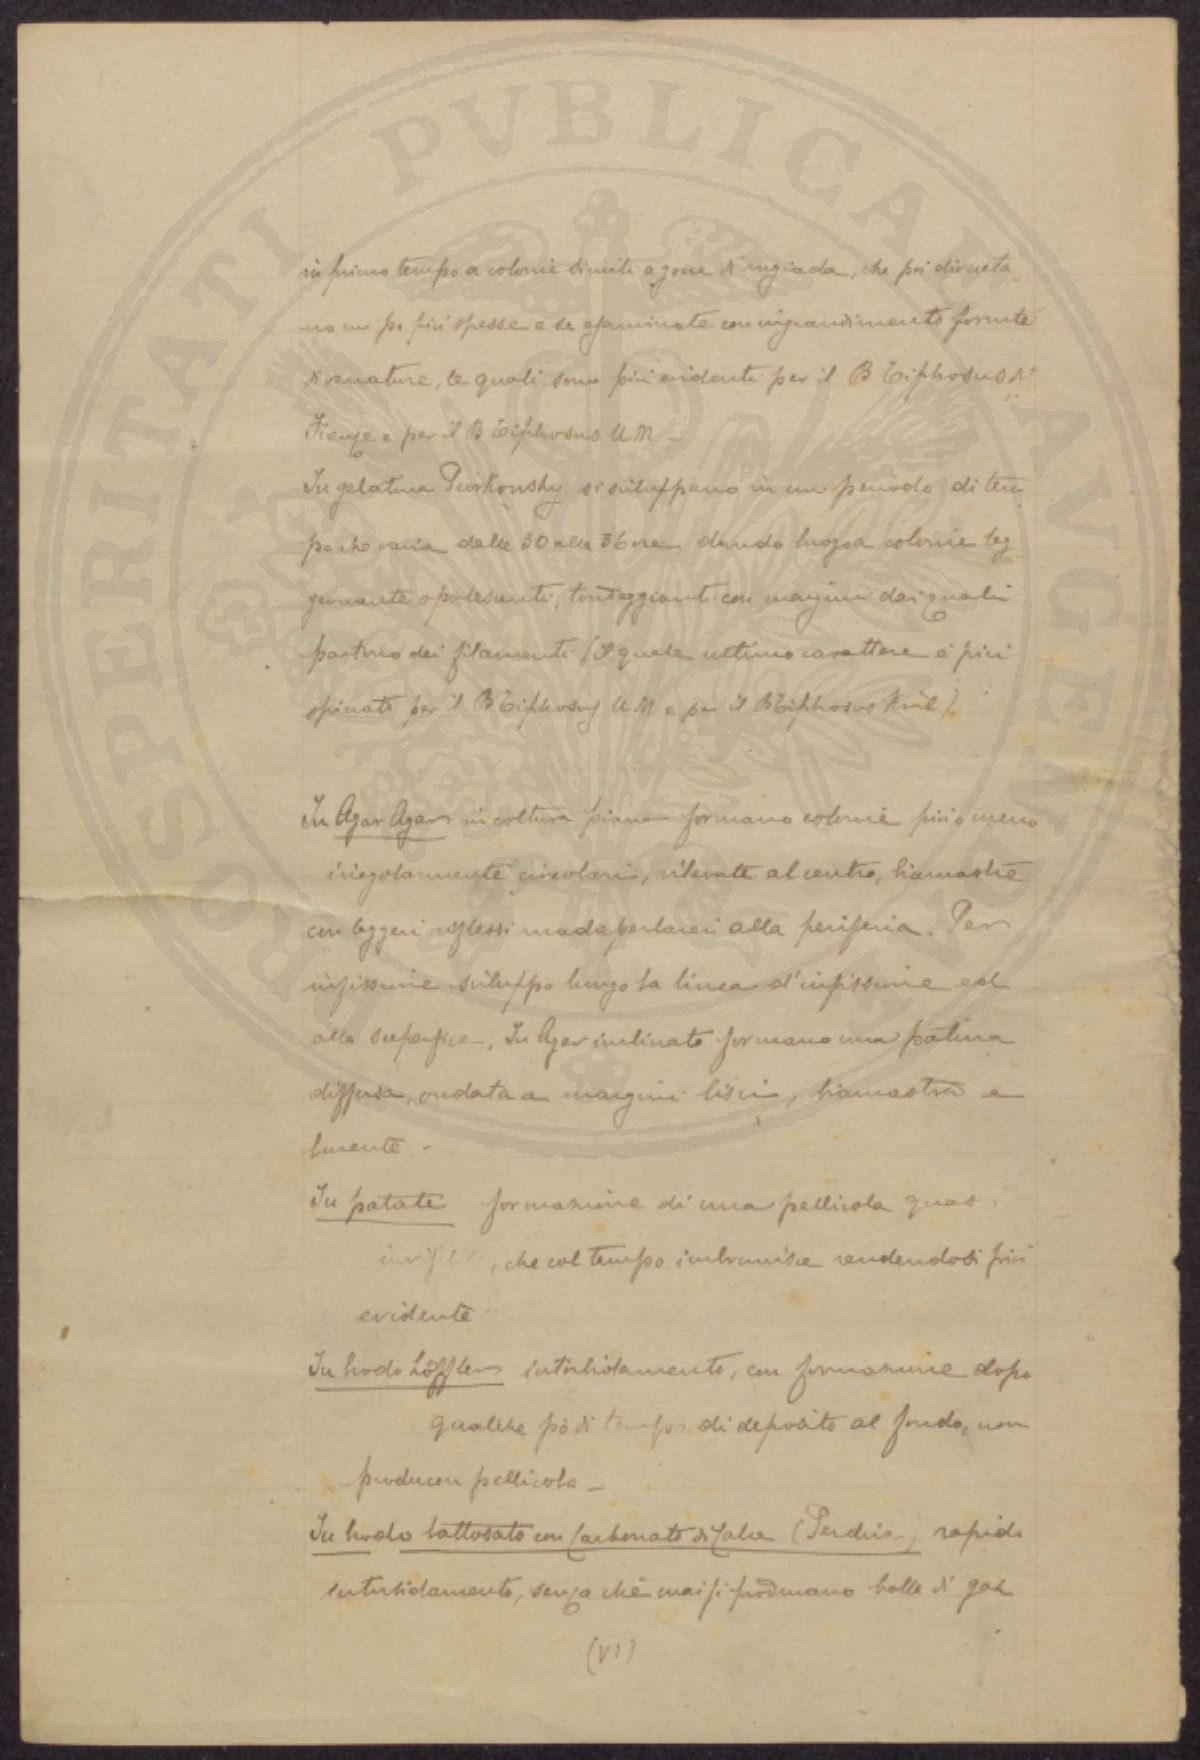 in primo tempo a colonie simili a gocce di rugiada, che poi diventa-
no un po più spesse e se esaminate con ingrandimento fornite
di venature, le quali sono più evidenti per il B Tiphosus di
Firenze e per il B Tiphosus U M -
In gelatina Piorkonsky si sviluppano in un periodo di tem
po che varia dalle 30 alle 36 ore dando luogo a colonie leg
germente opalescenti, tondeggianti con margini dai quali
partono dei filamenti (il quale ultimo carattere è più
spiccato per il B Tiphosus U M e per il B Tiphosus Kràl).
In Agar Agar in coltura piana formano colonie più o meno
irregolarmente circolari, rilevate al centro, biancastre
con leggeri riflessi madaperlacei alla periferia. Per
infissione sviluppo lungo la linea d'infissione ed
alla superfice -. In Agar inclinato formano una patina
diffusa, ondata a margini lisci, biancastra e
lucente -
In patate formazione di una pellicola quasi
che col tempo imbrunisce rendendosi più
evidente.
In brodo Löffler intorbidamento, con formazione dopo
qualche pò di tempo di deposito al fondo, non
producon pellicola -
In brodo lattosato con Carbonato di Calce (Perdrix) rapido
intorbidamento, senza che mai si producano bolle di gas
(VI)
PROSPERITATI PVBLICAE AVGENDAE